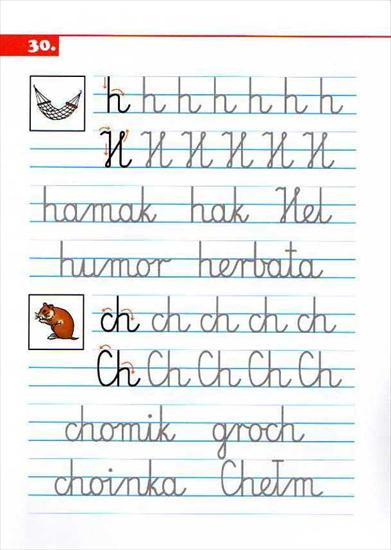 30.
h h h h h h h
H H H H H H
hamak hak Hel
humor herbata
ch ch ch ch ch
Ch Ch Ch Ch Ch
chomik groch
choinka Chełm